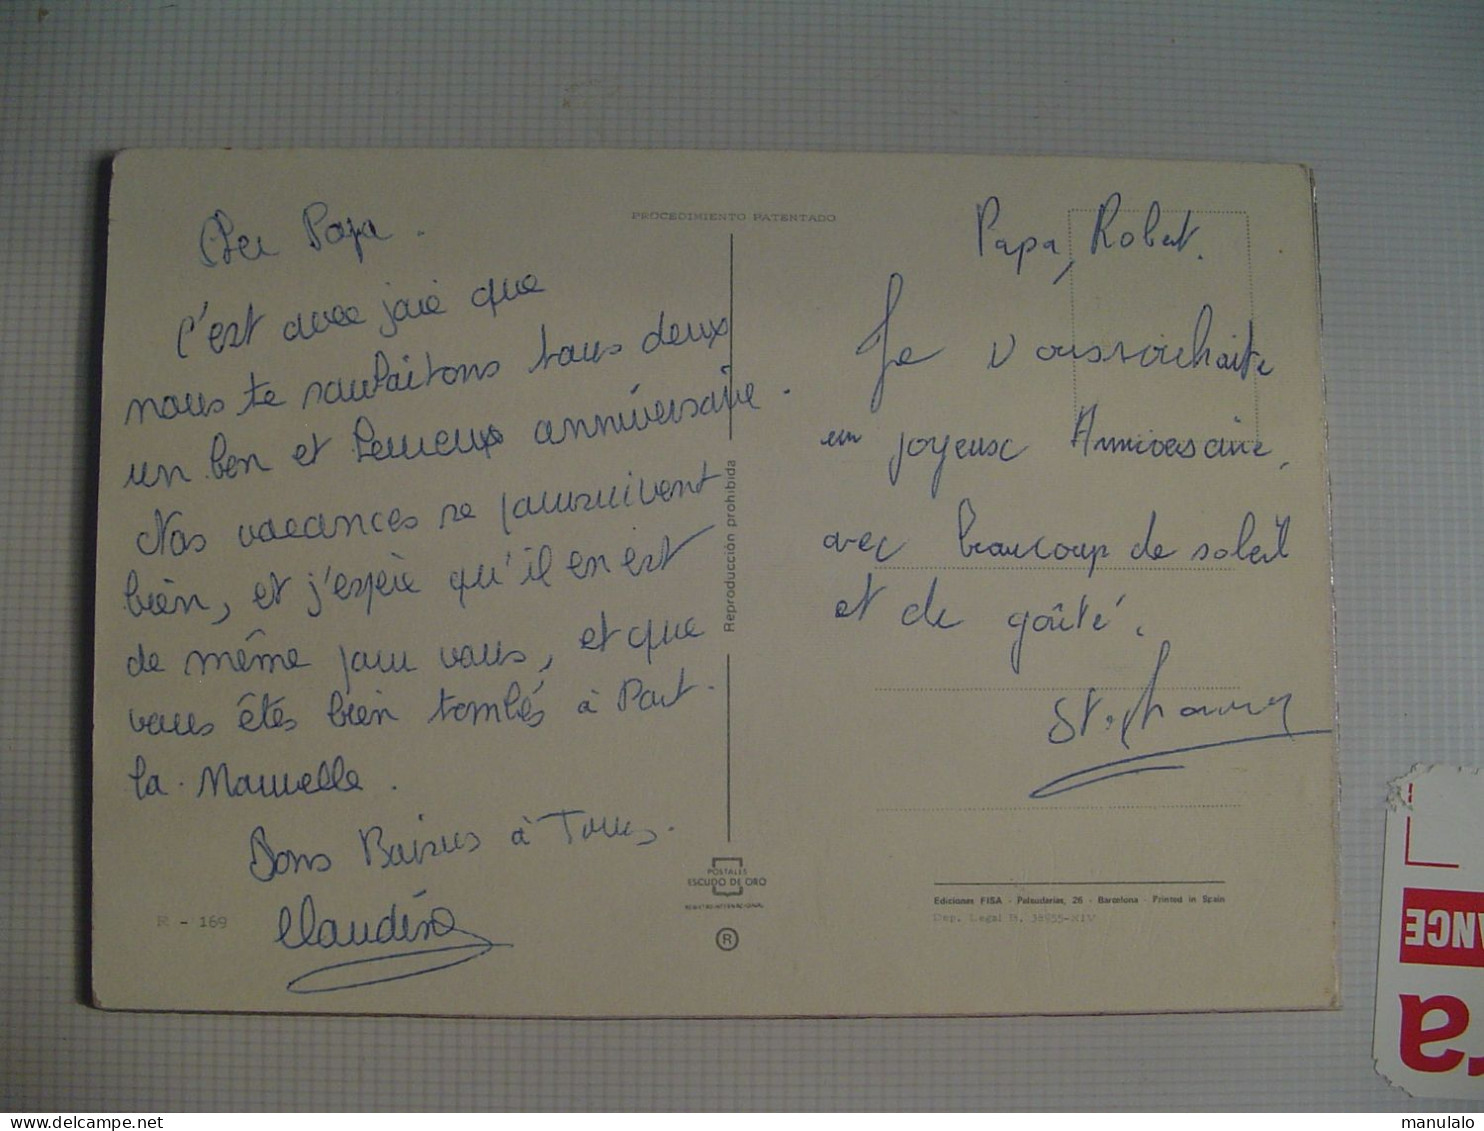 Cher Papa.
C'est avec joie que
nous te souhaitons tous deux
un bon et heureux anniversaire.
Nos vacances se poursuivent
bien, et j'espère qu'il en est
de même pour vous, et que
vous êtes bien tombés à Port
la Nouvelle.
Bons Baisers à Tous.
Claudine
R - 169
PROCEDIMIENTO PATENTADO
Reproducción prohibida
POSTALES
ESCUDO DE ORO
REGISTRO INTERNACIONAL
R
Papa, Robert.
Je vous souhaite
un joyeux Anniversaire,
avec beaucoup de soleil
et de goûté.
Ediciones FISA - Palaudarias, 26 - Barcelona - Printed in Spain
Dep. Legal B. 38955-XIV
manulalo